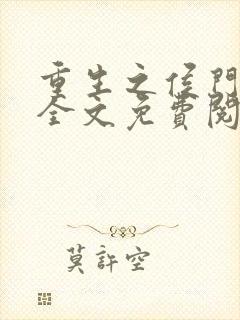 重生之侯門
全文免費閱
莫許空